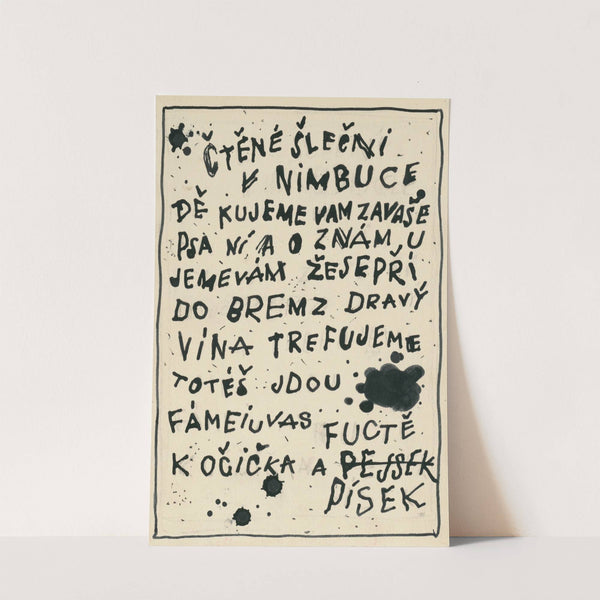 ČTĚNÉ ŠLEČNI
V NIMBUCE,
DĚ KUJEME VAM ZAVAŠE
PSA NÍ A O ZNÁM, U
JEMEVÁM ŽESEPŘÍ
DO BREMZ DRAVÝ
VÍNA TREFUJEME
TOTÉŠ JDOU
FÁMEIUVAS
FUCTĚ
KOČIČKA A PEJSEK
PÍSEK